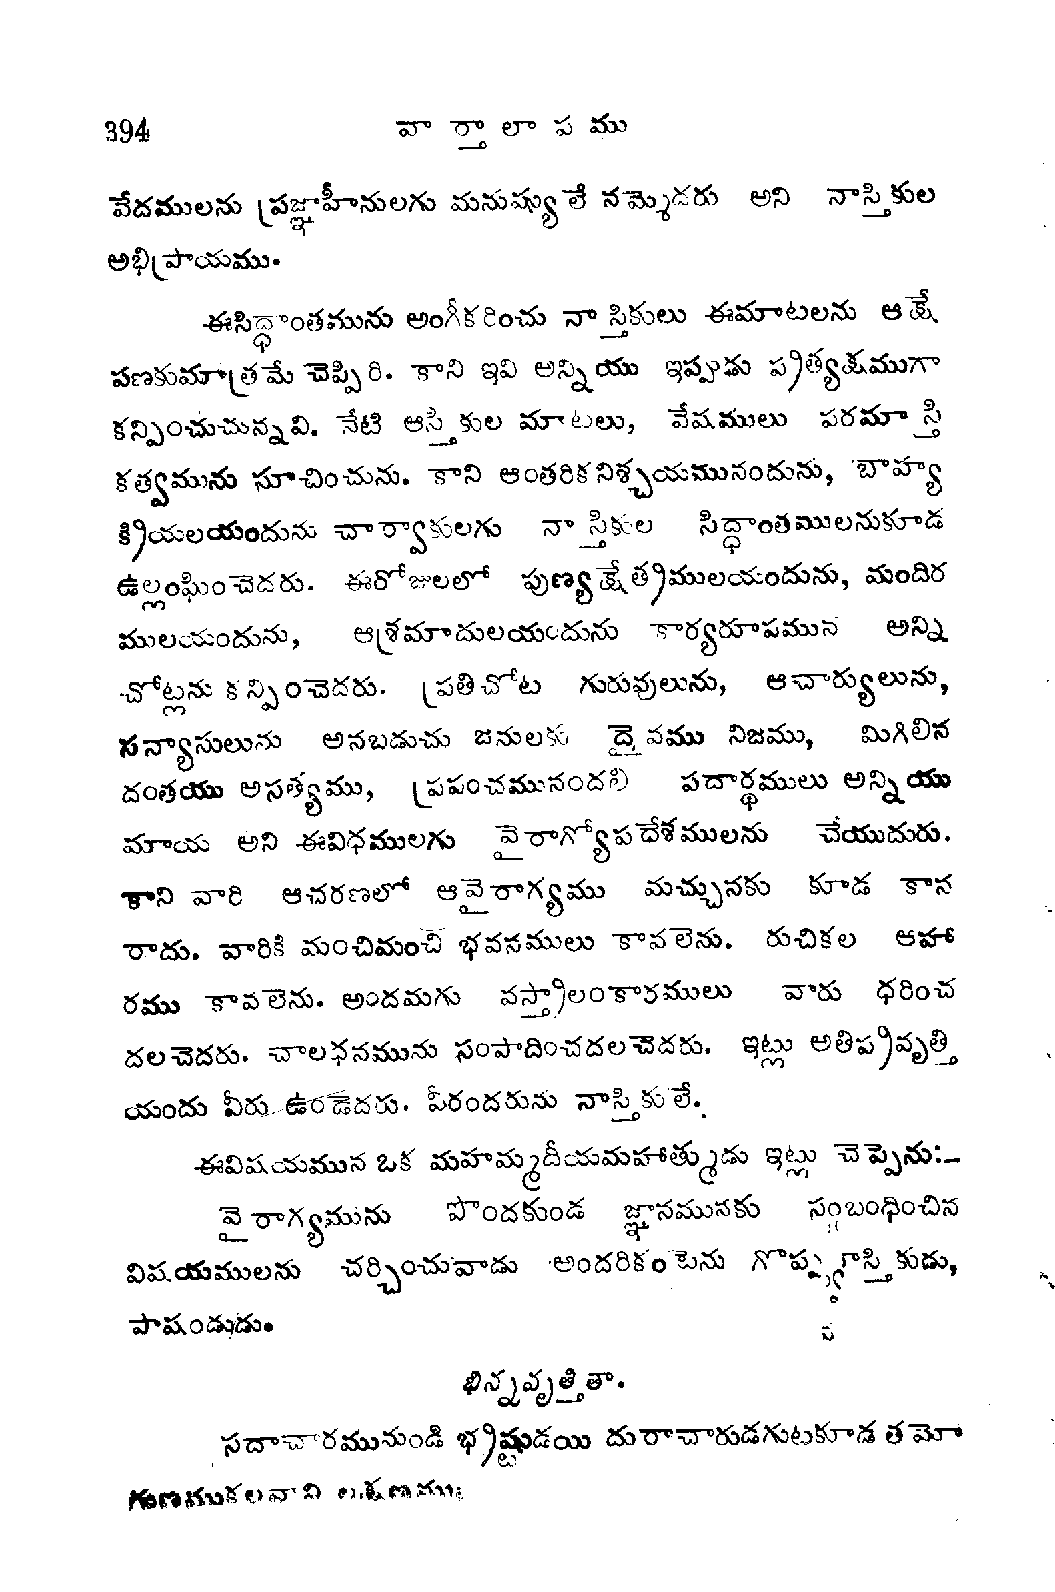 394 వార్తాలాపము
వేదములను ప్రజ్ఞాహీనులగు మనుష్యులే నమ్మెదరు అని నాస్తికుల
అభిప్రాయము.
ఈసిద్ధాంతమును అంగీకరించు నాస్తికులు ఈమాటలను ఆక్షే
పణకుమాత్రమే చెప్పిరి. కాని ఇవి అన్నియు ఇప్పుడు ప్రత్యక్షముగా
కన్పించుచున్నవి. నేటి ఆస్తికుల మాటలు, వేషములు పరమాస్తి
కత్వమును సూచించును. కాని ఆంతరికనిశ్చయమునందును, బాహ్య
క్రియలయందును చార్వాకులగు నాస్తికుల సిద్ధాంతములనుకూడ
ఉల్లంఘించెదరు. ఈరోజులలో పుణ్యక్షేత్రములయందును, మందిర
ములయందును, ఆశ్రమాదులయందును కార్యరూపమున అన్ని
చోట్లను కన్పించెదరు. ప్రతిచోట గురువులును, ఆచార్యులును,
సన్యాసులును అనబడుచు జనులకు దైవము నిజము, మిగిలిన
దంతయు అసత్యము, ప్రపంచమునందలి పదార్థములు అన్నియు
మాయ అని ఈవిధములగు వైరాగ్యోపదేశములను చేయుదురు.
కాని వారి ఆచరణలో ఆవైరాగ్యము మచ్చునకు కూడ కాన
రాదు. వారికి మంచిమంచి భవనములు కావలెను. రుచికల ఆహా
రము కావలెను. అందమగు వస్త్రాలంకారములు వారు ధరించ
దలచెదరు. చాలధనమును సంపాదించదలచెదరు. ఇట్లు అతిప్రవృత్తి
యందు వీరు ఉండెదరు. వీరందరును నాస్తికులే.
ఈవిషయమున ఒక మహమ్మదీయమహాత్ముడు ఇట్లు చెప్పెను:–
వైరాగ్యమును పొందకుండ జ్ఞానమునకు సంబంధించిన
విషయములను చర్చించువాడు అందరికంటెను గొప్ప నాస్తికుడు,
పాషండుడు.
ఖిన్నవృత్తితా.
సదాచారమునుండి భ్రష్టుడయి దురాచారుడగుటకూడ తమో
గుణముకలవాని లక్షణము.